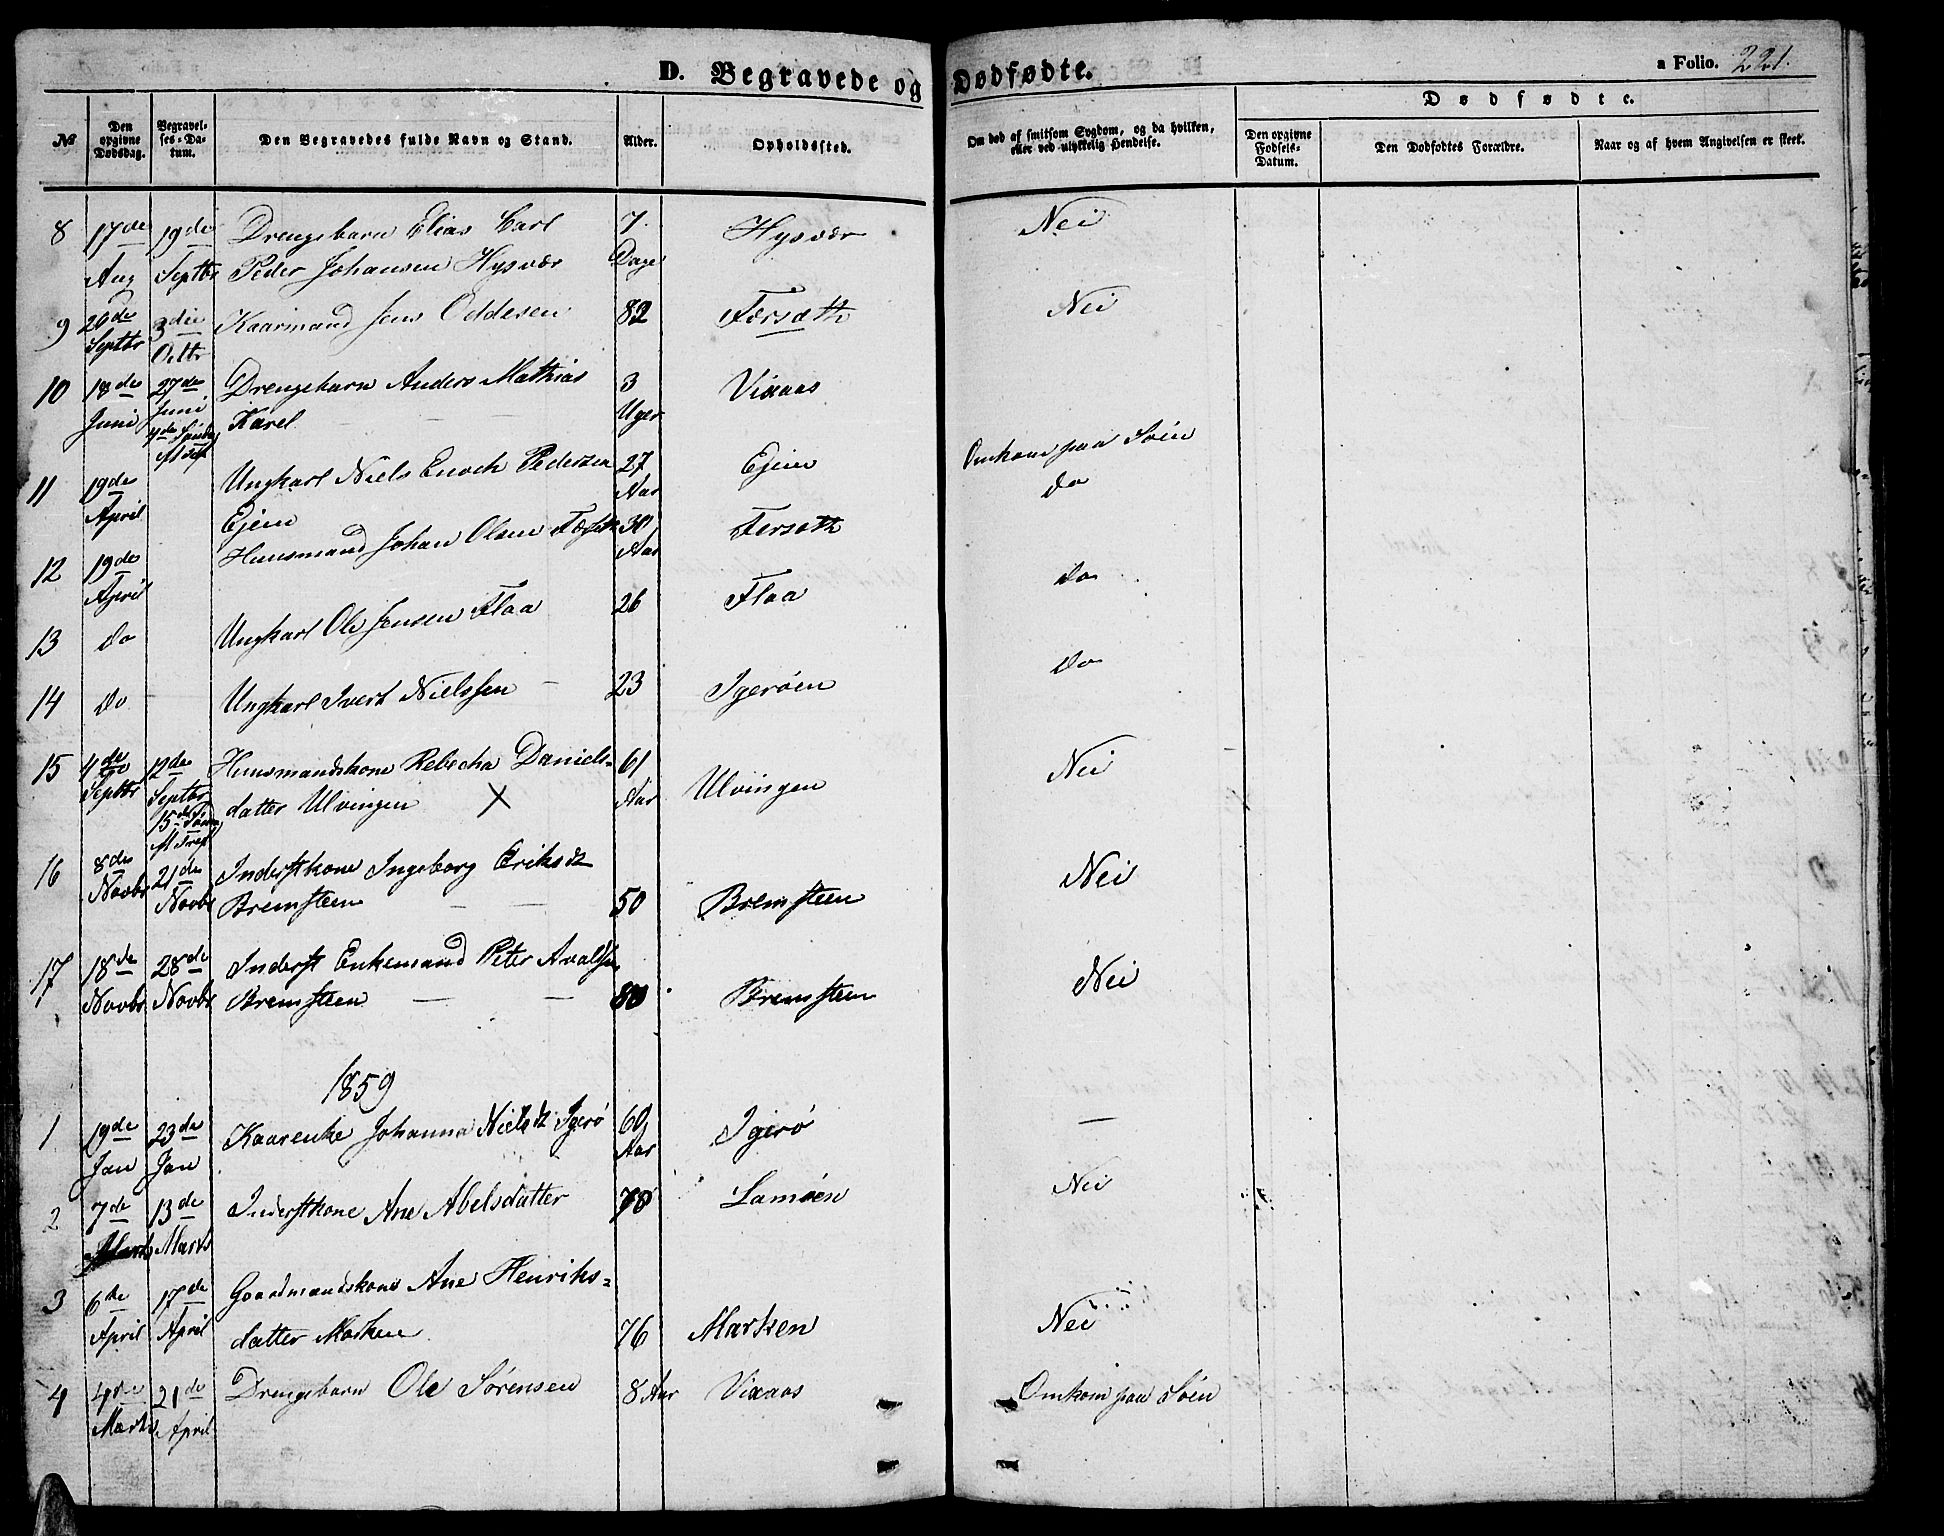 D. Begravede og Dødfødte.
a Folio. 221.
№
Den opgivne Dødsdag.
Begravelses-Datum.
Den Begravedes fulde Navn og Stand.
Alder.
Opholdssted.
Om død af smitsom Sygdom, og da hvilken, eller ved ulykkelig Hendelse.
Dødfødte.
Den opgivne Fødsels-Datum.
Den Dødfødtes Forældre.
Naar og af hvem Angivelsen er skeet.
8 17de Aug 19de Septbr Drengebarn Elias Carl 7 Dage Hysvær Nei
Peder Johansen Hysvær
9 20de Septbr 3die Octbr Kaarmand Jens Oddesen 82 Færsæth Nei
10 18de Juni 27de Juni Drengebarn Anders Mathias 3 Uger Vixaas
Karel
11 19de April Ungkarl Niels Enoch Pedersen 27 Aar Ejem Omkom paa Søen
Ejem
12 19de April Huusmand Johan Olsen 30 Aar Fersæth do
13 do Ungkarl Ole Jensen Flaa 26 Flaa do
14 do Ungkarl Ivert Nielssen 23 Igerøen do
15 4de Septbr 12de Septbr Huusmandskone Rebecha Daniels= 61 Aar Ulvingen Nei
datter Ulvingen X
16 8de Novbr 21de Novbr Inderstkone Ingeborg Eriksdt
Bremsteen 50 Bremsteen Nei
17 18de Novbr 28de Novbr Inderst Enkemand Peter
Bremsteen 80 Bremsteen Nei
1859
1 19de Jan 23de Jan Kaarenke Johanna Nielsdt Igerø 60 Aar Igerø —
2 7de Marts 13de Marts Inderstkone Ane Abelsdatter 70 Lamøen Nei
3 6de April 17de April Gaardmandskone Ane Henriks=
datter Marken 76 Marken Nei
4 4de Marts 21de April Drengebarn Ole Sørensen 8 Aar Vixaas Omkom paa Søen